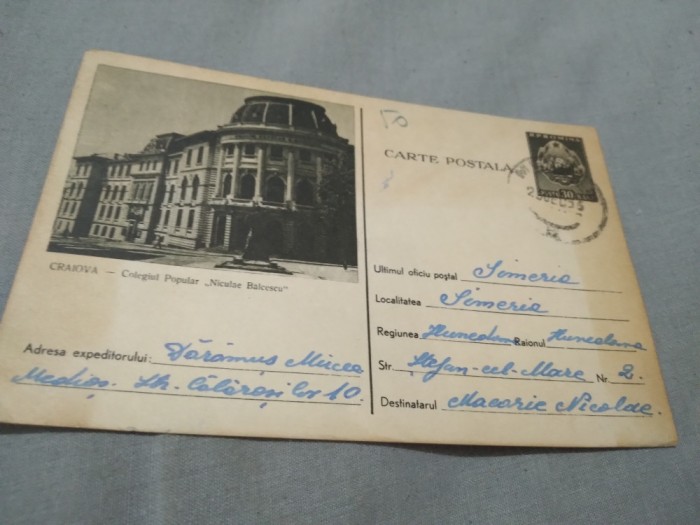 CRAIOVA — Colegiul Popular „Niculae Balcescu"
Adresa expeditorului: Dărămuș Mircea
Mediaș. Str. Călărași Nr 10.
50
CARTE POSTALA
Ultimul oficiu poștal Simeria
Localitatea Simeria
Regiunea Hunedoara Raionul Hunedoara
Str. Ștefan-cel-Mare Nr. 2.
Destinatarul Macarie Nicolae.